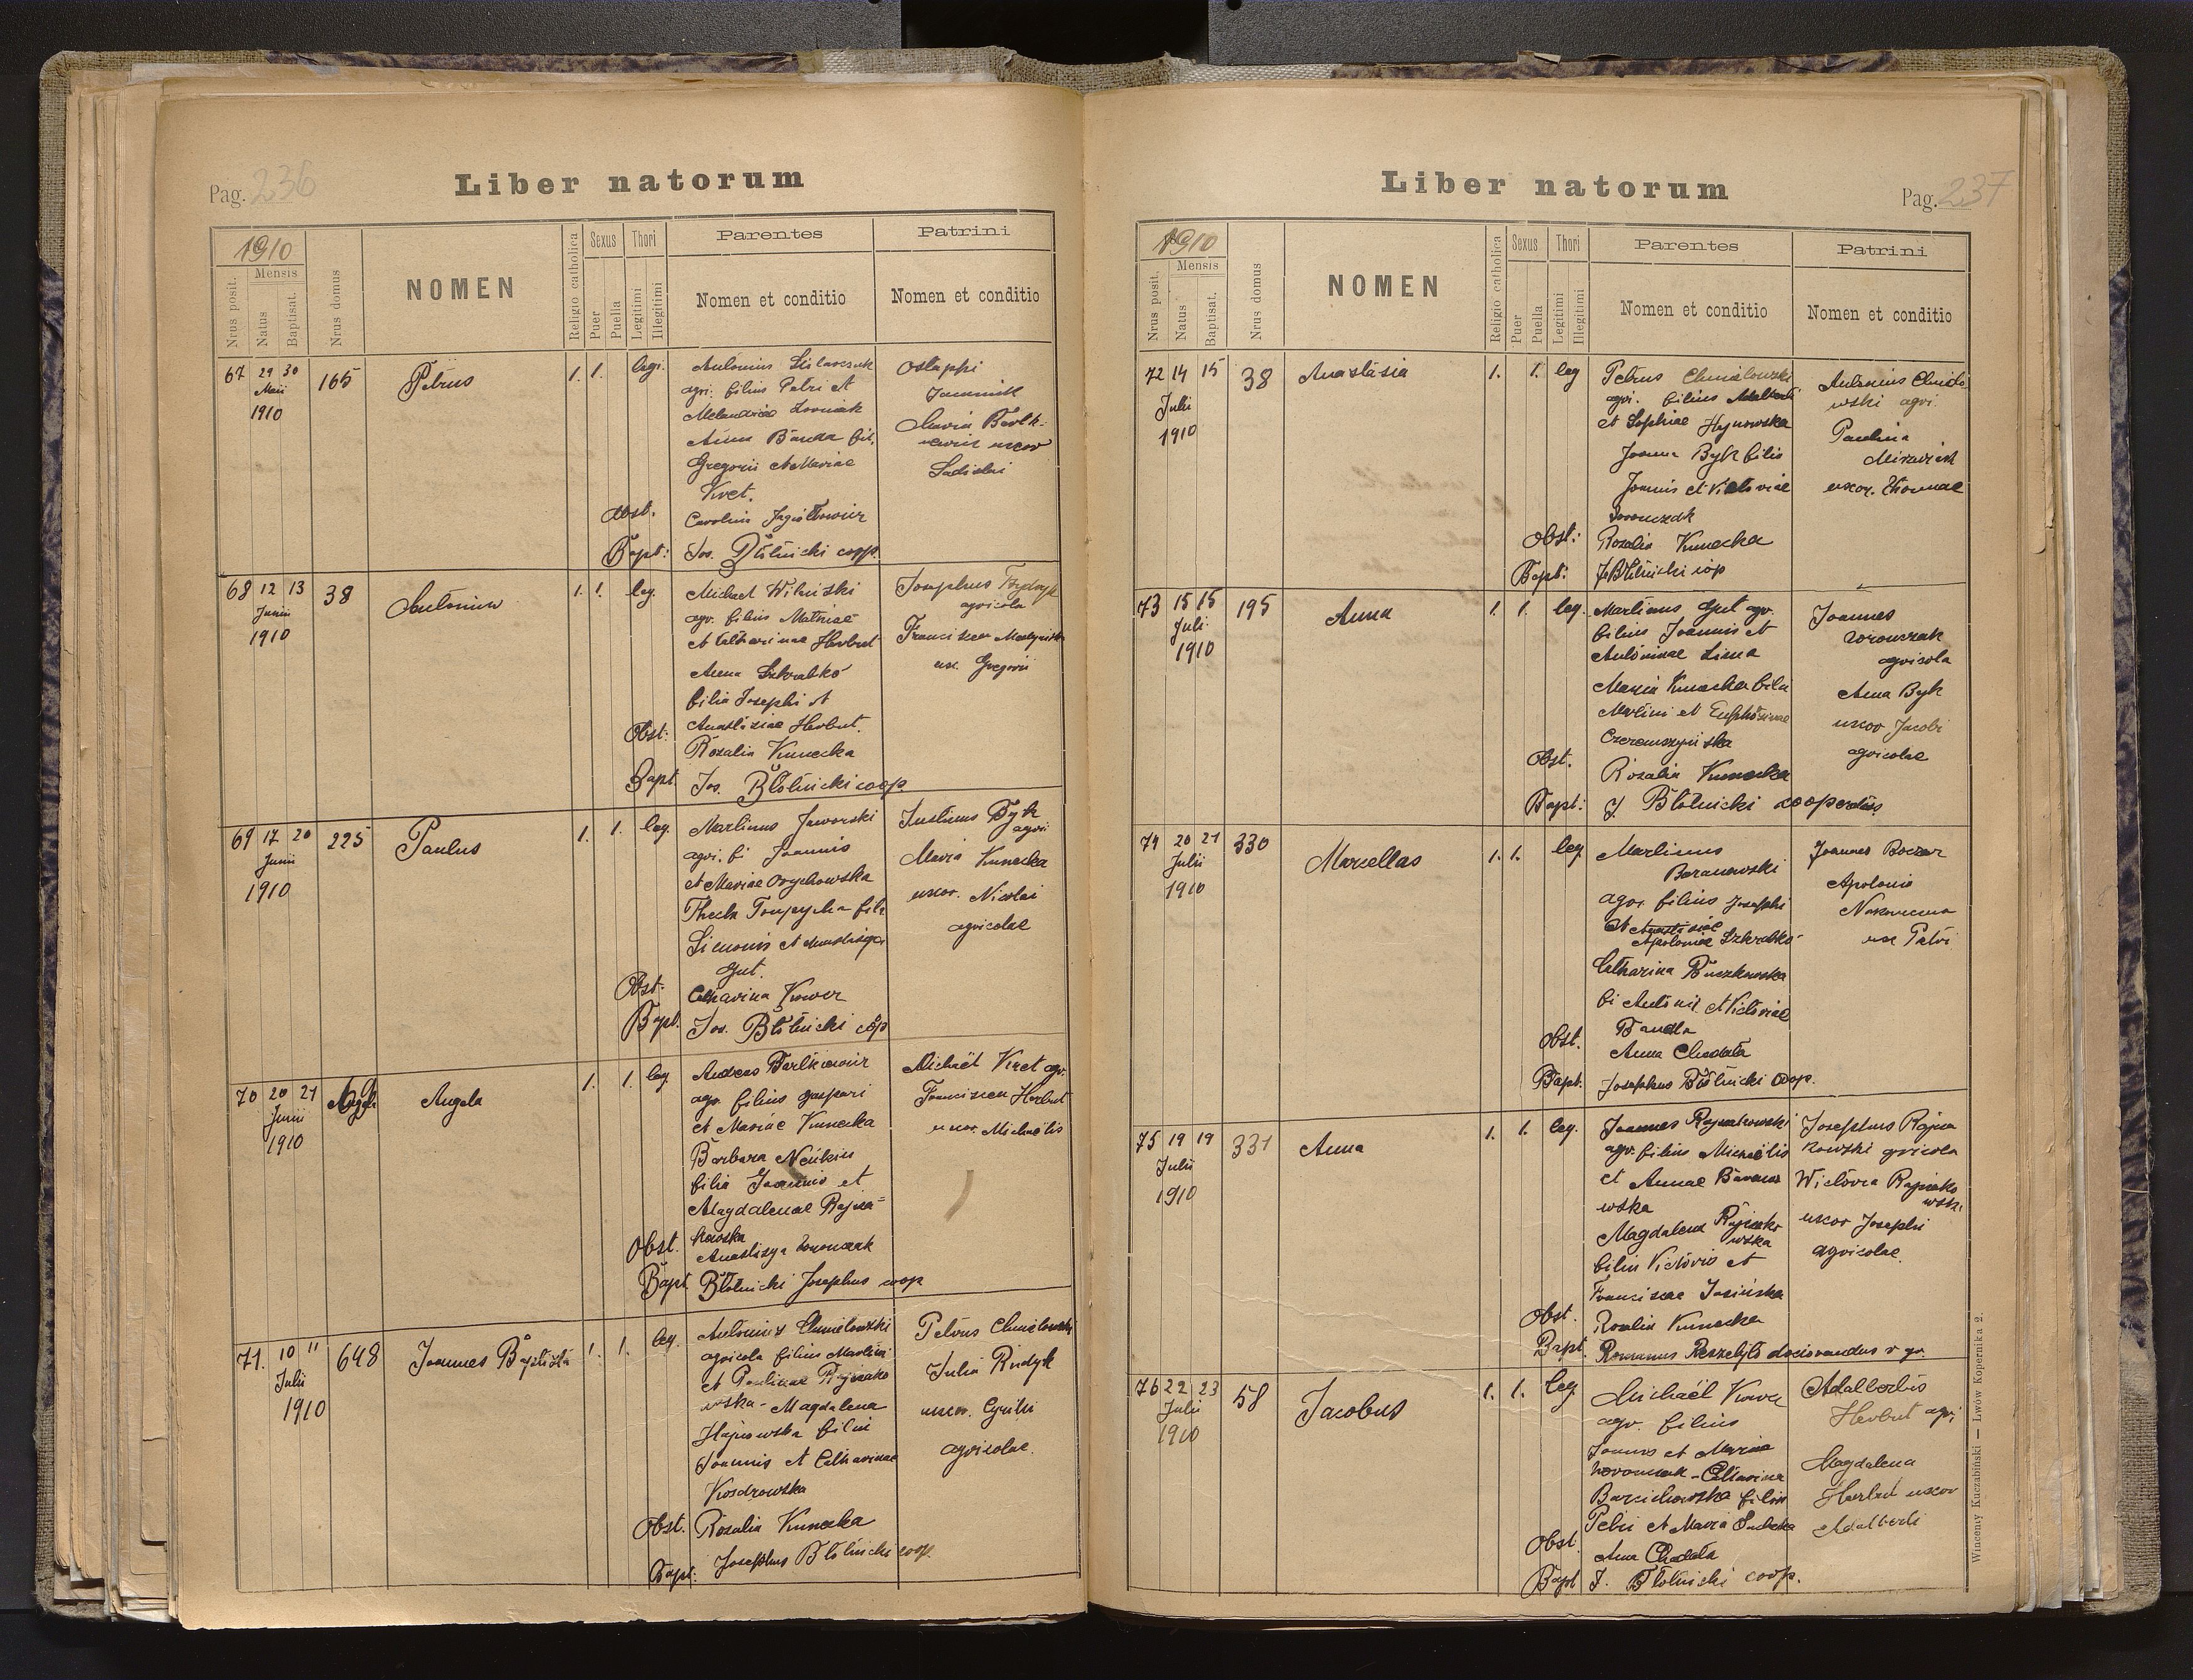 Pag. 236
Liber natorum
1910
Mensis
Nrus posit.
Natus
Baptisat.
Nrus domus
NOMEN
Religio catholica
Sexus
Puer
Puella
Thori
Legitimi
Illegitimi
Parentes
Nomen et conditio
Patrini
Nomen et conditio
67 29 30 165 Petrus 1. 1. legi.
Maii
1910
Antonius
agr. filius Petri et
Anna Banda fil.
Gregorii et Mariae
Kret.
Obst. Carolina
Bapt: Jos. Błotnicki coop.
Ostapphi
Maria
uxor
Ladislai
68 12 13 38 Antonius 1. 1. leg.
Junii
1910
Michael Wilniski
agr. filius Mathiae
et Catharinae Herbut
Anna Szkrabko
filia Josephi et
Anastasiae Herbut.
Obst: Rozalia Kunecka
Bapt. Jos. Błotnicki coop.
Josephus
agricola
Francisca
ux. Gregorii
69 17 20 225 Paulus 1. 1. leg.
Junii
1910
Martinus Jaworski
agri. fi Joannis
et Mariae Orychowska
Thecla fili
Simonis et
Gut.
Obst. Catharina Kower
Bapt. Jos. Błotnicki cop
Justinus Byk
agri
Maria Kunecka
uxor. Nicolai
agricolae
70 20 21 Angela 1. 1. leg
Junii
1910
Andreas Bartkiewicz
agr. filius Gaspari
et Mariae Kunecka
Barbara
filia Joannis et
Magdalenae Rajna=
kowska
Obst. Anastasya Woronczak
Bapt Błotnicki Josephus coop
Michaël Kret agr.
Francisca Herbut
uxor. Michaëlis
71. 10 11 648 Joannes Baptista 1. 1. leg.
Julii
1910
Antonius Chmielowski
agricola filius Martini
et Paulinae Rajnako
wska - Magdalena
Hajnowska filia
Joannis et Catharinae
Kozdrowska
Obst. Rozalia Kunecka
Bapt: Josephus Błotnicki coop.
Petrus Chmielowski
Julia Rudyk
uxor. Cyrilli
agricolae.
Liber natorum
Pag. 237
1910
Mensis
Nrus posit.
Natus
Baptisat.
Nrus domus
NOMEN
Religio catholica
Sexus
Puer
Puella
Thori
Legitimi
Illegitimi
Parentes
Nomen et conditio
Patrini
Nomen et conditio
72 14 15 38 Anastasia 1. 1. leg
Julii
1910
Petrus Chmielowski
agri. filius Adalberti
et Sophiae Hajnowska
Joanna Byk filia
Joannis et Victoriae
Woronczak
Obst: Rozalia Kunecka
Bapt: J Błotnicki cop
Antonius Chmielo
wski agri.
Paulina
uxor. Thomae
73 15 15 195 Anna 1. 1. leg.
Juli
1910
Martinus Gut agr.
filius Joannis et
Antoninae
Maria Kunecka filia
Martini et Euphrosinae
Czeremszyńska
Obst. Rozalia Kunecka
Bapt: J. Błotnicki cooperator
Joannes
Woronczak
agricola
Anna Byk
uxor Jacobi
agricolae
74 20 21 330 Marcellus 1. 1. leg
Julii
1910
Martinus
Baranowski
agr. filius Josephi
et Anastasiae
Apoloniae Szkrabko
Catharina Buczkowska
fi Antonii et Victoriae
Banda
Obst. Anna Chodata
Bapt. Josephus Błotnicki coop.
Joannes Boczar
Apolonia
ux Petri
75 19 19 331 Anna 1. 1. leg.
Julii
1910
Joannes Rajnakowski
agr. filius Michaëlis
et Annae Barano
wska
Magdalena Rajnako
wska
filia Victoris et
Franciscae Jasińska
Obst. Rozalia Kunecka
Bapt. Romanus Reszetyło
Josephus Rajna
kowski agricola
Wictoria Rajnako
wska
uxor Josephi
agricolae.
76 22 23 58 Jacobus 1. 1. leg.
Julii
1910
Michaël Kower
agr. filius
Joannis et Maria
Woronczak - Catharina
filia
Petri et Maria
Obst. Anna Chodata
Bapt J. Błotnicki coop.
Adalbertus
Herbut agri
Magdalena
Herbut uxor
Adalberti
Winiemy Kuczabiński — Lwów Kopernika 2.